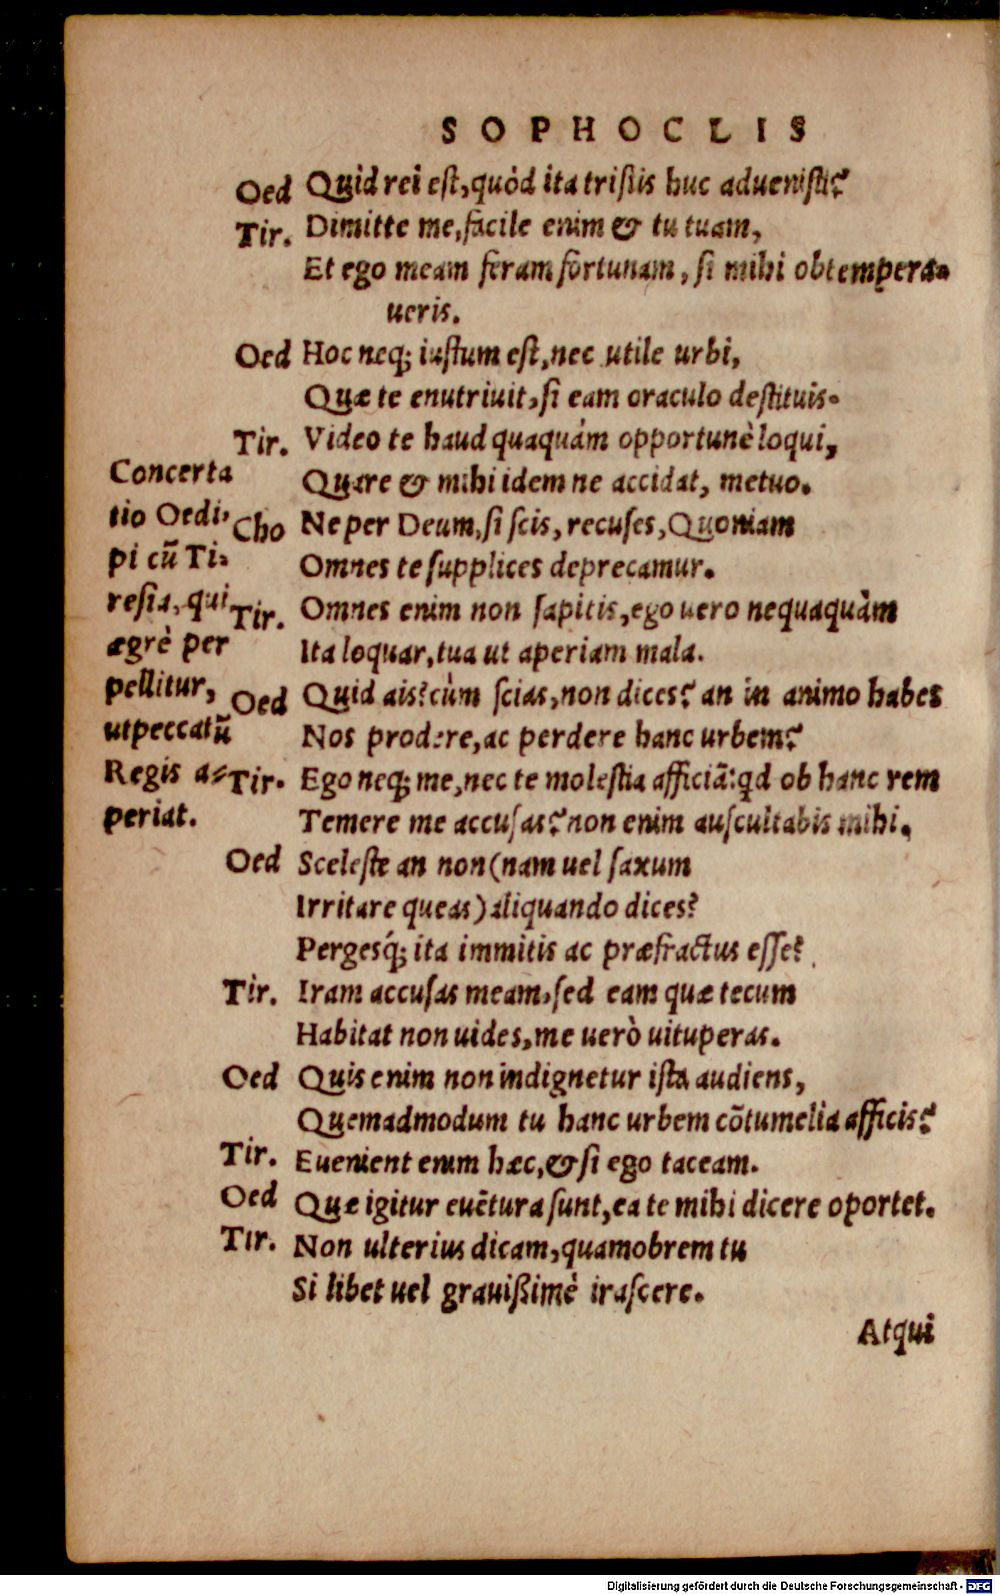 SOPHOCLIS
Oed Quid rei est, quòd ita tristis huc aduenisti?
Tir. Dimitte me, facile enim & tu tuam,
Et ego meam feram fortunam, si mihi obtempera-
ueris.
Oed Hoc neq; iustum est, nec utile urbi,
Quæ te enutriuit, si eam oraculo destituis.
Tir. Video te haud quaquám opportunè loqui,
Quare & mihi idem ne accidat, metuo.
Cho Ne per Deum, si scis, recuses, Quoniam
Omnes te supplices deprecamur.
Tir. Omnes enim non sapitis, ego uero nequaquàm
Ita loquar, tua ut aperiam mala.
Oed Quid ais? cùm scias, non dices? an in animo habes
Nos prodere, ac perdere hanc urbem?
Tir. Ego neq; me, nec te molestia afficiã: qd ob hanc rem
Temere me accusas? non enim auscultabis mihi.
Oed Sceleste an non (nam uel saxum
Irritare queas) aliquando dices?
Pergesq́; ita immitis ac præfractus esse?
Tir. Iram accusas meam, sed eam quæ tecum
Habitat non uides, me uerò uituperas.
Oed Quis enim non indignetur ista audiens,
Quemadmodum tu hanc urbem cõtumelia afficis?
Tir. Euenient enim hæc, & si ego taceam.
Oed Quæ igitur euẽtura sunt, ea te mihi dicere oportet.
Tir. Non ulterius dicam, quamobrem tu
Si libet uel grauißimè irascere.
Atqui
Concerta
tio Oedi-
pi cũ Ti-
resia, qui
ægrè per
pellitur,
ut peccatũ
Regis a-
periat.
Digitalisierung gefördert durch die Deutsche Forschungsgemeinschaft - DFG